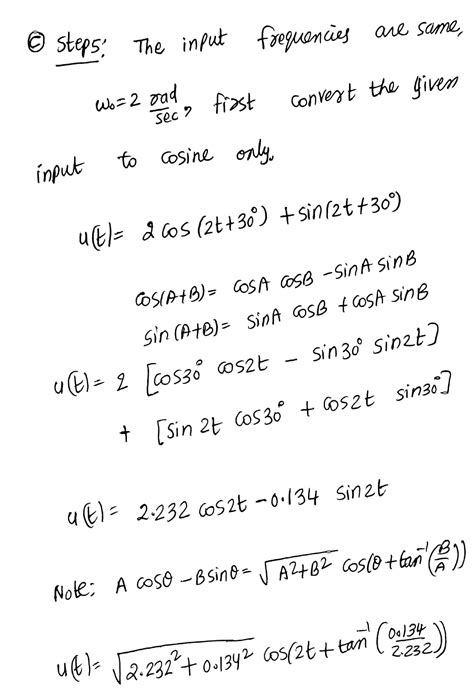 © Steps: The input frequencies are same,
ω₀=2 rad/sec, first convert the given
input to cosine only.
u(t)= 2 cos (2t+30°) + sin(2t+30°)
cos(A+B)= cosA cosB - sinA sinB
sin (A+B)= sinA cosB + cosA sinB
u(t)= 2 [cos30° cos2t - sin30° sin2t]
+ [sin 2t cos30° + cos2t sin30°]
u(t)= 2.232 cos2t - 0.134 sin2t
Note: A cosθ - Bsinθ = √(A²+B²) cos(θ + tan⁻¹(B/A))
u(t)= √(2.232² + 0.134²) cos(2t + tan⁻¹(0.134/2.232))